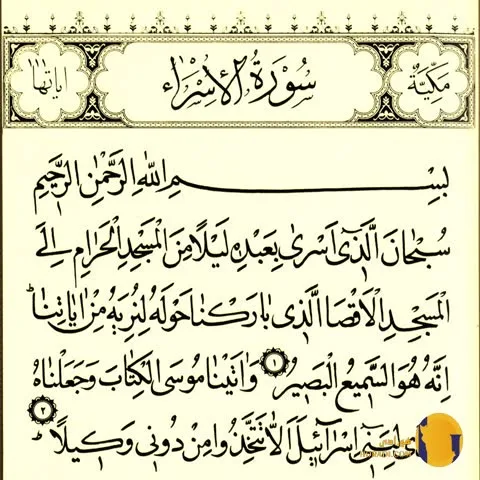 مَكِّيَّةٌ سُورَةُ الْإِسْرَاءِ اٰيَاتُهَا
بِسْمِ اللهِ الرَّحْمٰنِ الرَّحِيمِ
سُبْحَانَ الَّذٖٓى اَسْرٰى بِعَبْدِهٖ لَيْلًا مِنَ الْمَسْجِدِ الْحَرَامِ اِلَى
الْمَسْجِدِ الْاَقْصَا الَّذٖى بَارَكْنَا حَوْلَهُ لِنُرِيَهُ مِنْ اٰيَاتِنَاؕ
اِنَّهُ هُوَ السَّمٖيعُ الْبَصٖيرُ ﴿١﴾ وَاٰتَيْنَا مُوسَى الْكِتَابَ وَجَعَلْنَاهُ
لِبَنٖٓى اِسْرَٓائٖلَ اَلَّا تَتَّخِذُوا مِنْ دُونٖى وَكٖيلًاؕ ﴿٢﴾